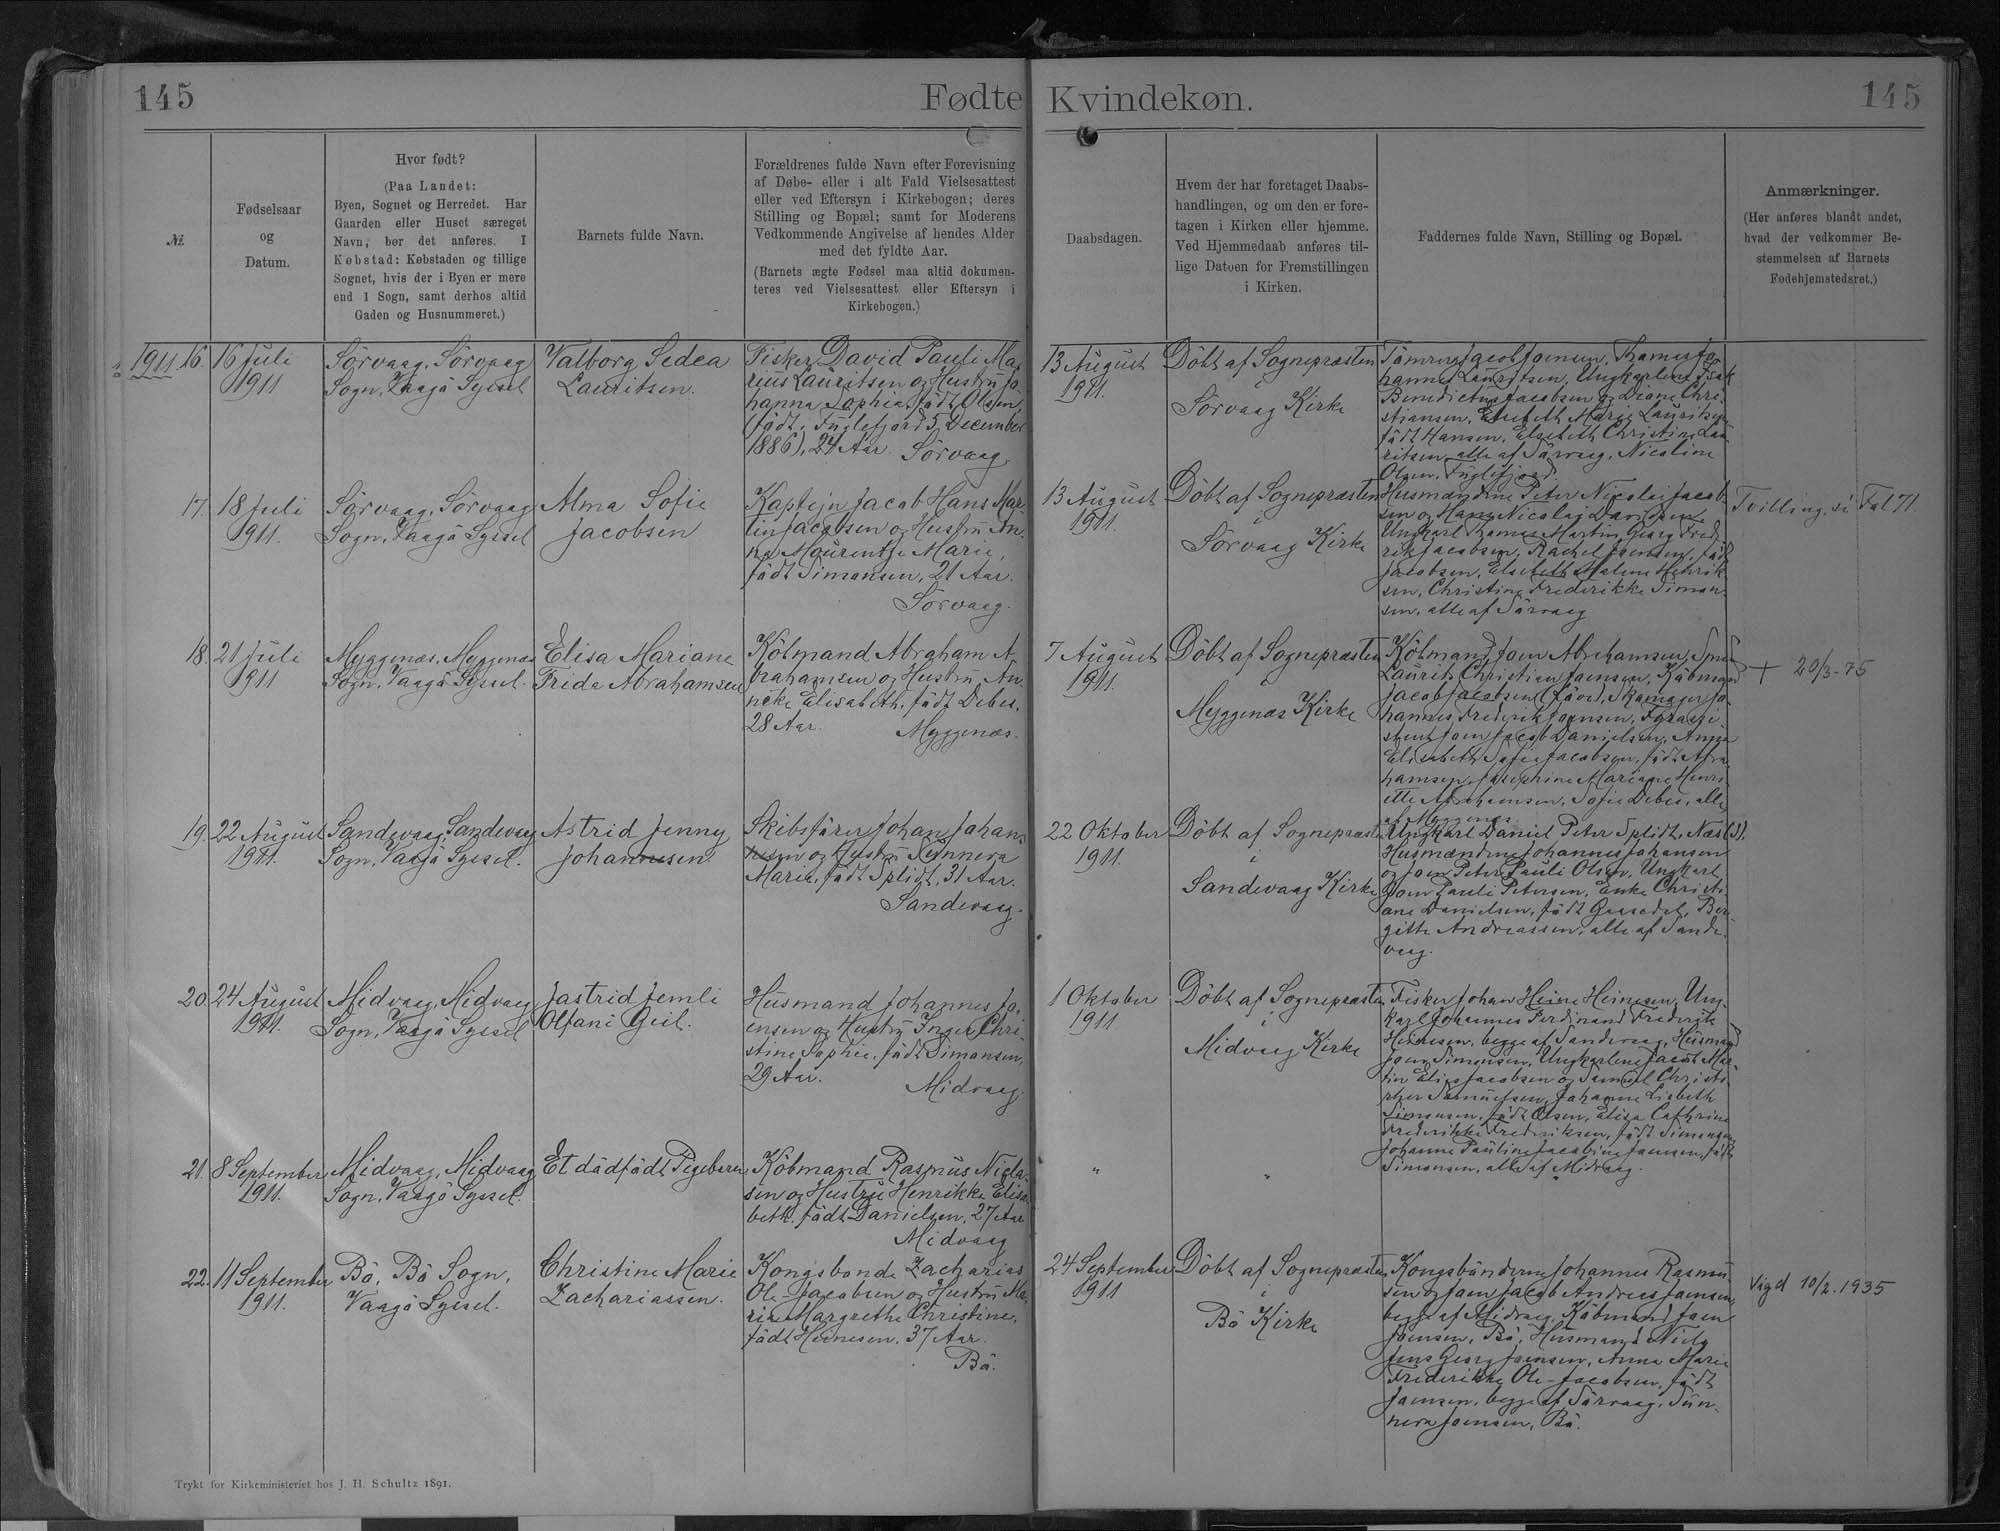 145
Fødte
Kvindekøn.
145
№.
Fødselsaar
og
Datum.
Hvor født?
(Paa Landet:
Byen, Sognet og Herredet. Har
Gaarden eller Huset særeget
Navn, bør det anføres. I
Købstad: Købstaden og tillige
Sognet, hvis der i Byen er mere
end 1 Sogn, samt derhos altid
Gaden og Husnummeret.)
Barnets fulde Navn.
Forældrenes fulde Navn efter Forevisning
af Døbe- eller i alt Fald Vielsesattest
eller ved Eftersyn i Kirkebogen; deres
Stilling og Bopæl; samt for Moderens
Vedkommende Angivelse af hendes Alder
med det fyldte Aar.
(Barnets ægte Fødsel maa altid dokumen-
teres ved Vielsesattest eller Eftersyn i
Kirkebogen.)
Daabsdagen.
Hvem der har foretaget Daabs-
handlingen, og om den er fore-
tagen i Kirken eller hjemme.
Ved Hjemmedaab anføres til-
lige Datoen for Fremstillingen
i Kirken.
Faddernes fulde Navn, Stilling og Bopæl.
Anmærkninger.
(Her anføres blandt andet,
hvad der vedkommer Be-
stemmelsen af Barnets
Fødehjemstedsret.)
1911
16.
16 Juli
1911
Sörvaag, Sörvaag
Sogn, Vaagö Syssel
Valborg Sedea
Lauritsen.
Fisker David Pauli Ma-
rius Lauritsen og Hustru Jo-
hanna Sophia, födt Olsen
(födt i Fuglefjord 5 December
1886), 24 Aar. Sörvaag.
13 August
1911.
Döbt af Sognepræsten
i
Sörvaag Kirke
Tömrer Jacob Joensen, Thomas Jo-
hannes Lauritsen, Ungkarlene Isak
Benedictus Jacobsen og Deane Chri-
stiansen, Elsebeth Marie Lauritsen
födt Hansen, Elsebeth Christine Lau-
ritsen, alle af Sörvaag, Nicoline
Olsen, Fuglefjord
17.
18 Juli
1911.
Sörvaag, Sörvaag
Sogn, Vaagö Syssel
Alma Sofie
Jacobsen
Kaptejn Jacob Hans Mar-
tin Jacobsen og Hustru An-
na Mourentze Marie,
födt Simonsen, 21 Aar.
Sörvaag.
13 August
1911.
Döbt af Sognepræsten
i
Sörvaag Kirke
Husmændene Peter Nicolai Jacob-
sen og Hans Nicolaj Davidsen,
Ungkarl Thomas Martin Georg Fred-
rik Jacobsen, Rachel Joensen, födt
Jacobsen, Elsebeth Malene Henrik-
sen, Christine Frederikke Simon-
sen, alle af Sörvaag
Tvilling, si Fol 71.
18.
21 Juli
1911
Myggenæs, Myggenæs
Sogn, Vaagö Syssel.
Elisa Mariane
Frida Abrahamsen
Köbmand Abraham A-
brahamsen og Hustru An-
neke Elisabeth, födt Debes,
28 Aar.
Myggenæs.
7 August
1911.
Döbt af Sognepræsten
i
Myggenæs Kirke
Köbmand Joen Abrahamsen,
Laurits Christian Joensen, Köbmand
Jacob Jacobsen, Skomager Jo-
hannes Frederik Joensen, Fyrassi-
stent Joen Jacob Danielsen, Anna
Elisabeth Sofie Jacobsen, födt Abra-
hamsen, Josephine Mariane Henri-
ette Abrahamsen, Sofie Debes, alle
af Myggenæs.
+ 20/3-75
19.
22 August
1911.
Sandevaag, Sandevaag
Sogn, Vaagö Syssel.
Astrid Jenny
Johannesen
Skibsförer Johan Johan-
nesen og Hustru Sunneva
Marie, födt Splidt, 31 Aar.
Sandevaag.
22 Oktober
1911.
Döbt af Sognepræsten
i
Sandevaag Kirke
Ungkarl Daniel Peter Splidt, Næs
Husmændene Johannes Johansen
og Joen Peter Pauli Olsen, Ungkarl
Joen Pauli Petersen, Enke Christi-
ane Danielsen, födt Gaasedal, Bir-
gitte Andreassen, alle af Sande-
vaag.
20.
24 August
1911.
Midvaag, Midvaag
Sogn, Vaagö Syssel
Jastrid Jemli
Olfani Geil.
Husmand Johannes Jo-
ensen og Hustru Inger Chri-
stine Sophie, födt Simonsen,
29 Aar.
Midvaag.
1 Oktober
1911
Döbt af Sognepræsten
i
Midvaag Kirke
Fisker Johan Heine Heinesen, Ung-
karl Johannes Ferdinand Frederik
Heinesen, begge af Sandevaag, Husmand
Joen Simonsen, Ungkarlene Jacob Mar-
tin Elias Jacobsen og Samuel Christi-
Samuelsen, Johanne Lisbeth
Simonsen, födt Olsen, Elisa Cathrine
Frederikke Frederiksen, födt Simonsen,
Johanne Pauline Jacobine Joensen, födt
Simonsen, alle af Midvaag.
21.
8 September
1911.
Midvaag, Midvaag
Sogn, Vaagö Syssel.
Et dödfödt Pigebarn
Köbmand Rasmus Niela-
sen og Hustru Henrikke Elisa-
beth, födt Danielsen, 27 Aar
Midvaag
"
"
"
22.
11 September
1911.
Bö, Bö Sogn,
Vaagö Syssel.
Christine Marie
Zachariassen.
Kongsbonde Zacharias
Ole-Jacobsen og Hustru Ma-
rie Margrethe Christine,
födt Heinesen, 37 Aar.
Bö.
24 September
1911
Döbt af Sognepræsten
i
Bö Kirke
Kongsbönderne Johannes Rasmus-
sen og Joen Jacob Andreas Joensen,
begge af Midvaag, Köbmand Joen
Joensen, Bö, Husmand Niels
Jens Georg Joensen, Anna Marie
Frederikke Ole-Jacobsen, födt
Joensen, begge af Sörvaag, Sun-
neva Joensen, Bö.
Viegd 10/2. 1935
Trykt for Kirkeministeriet hos J. H. Schultz 1891.